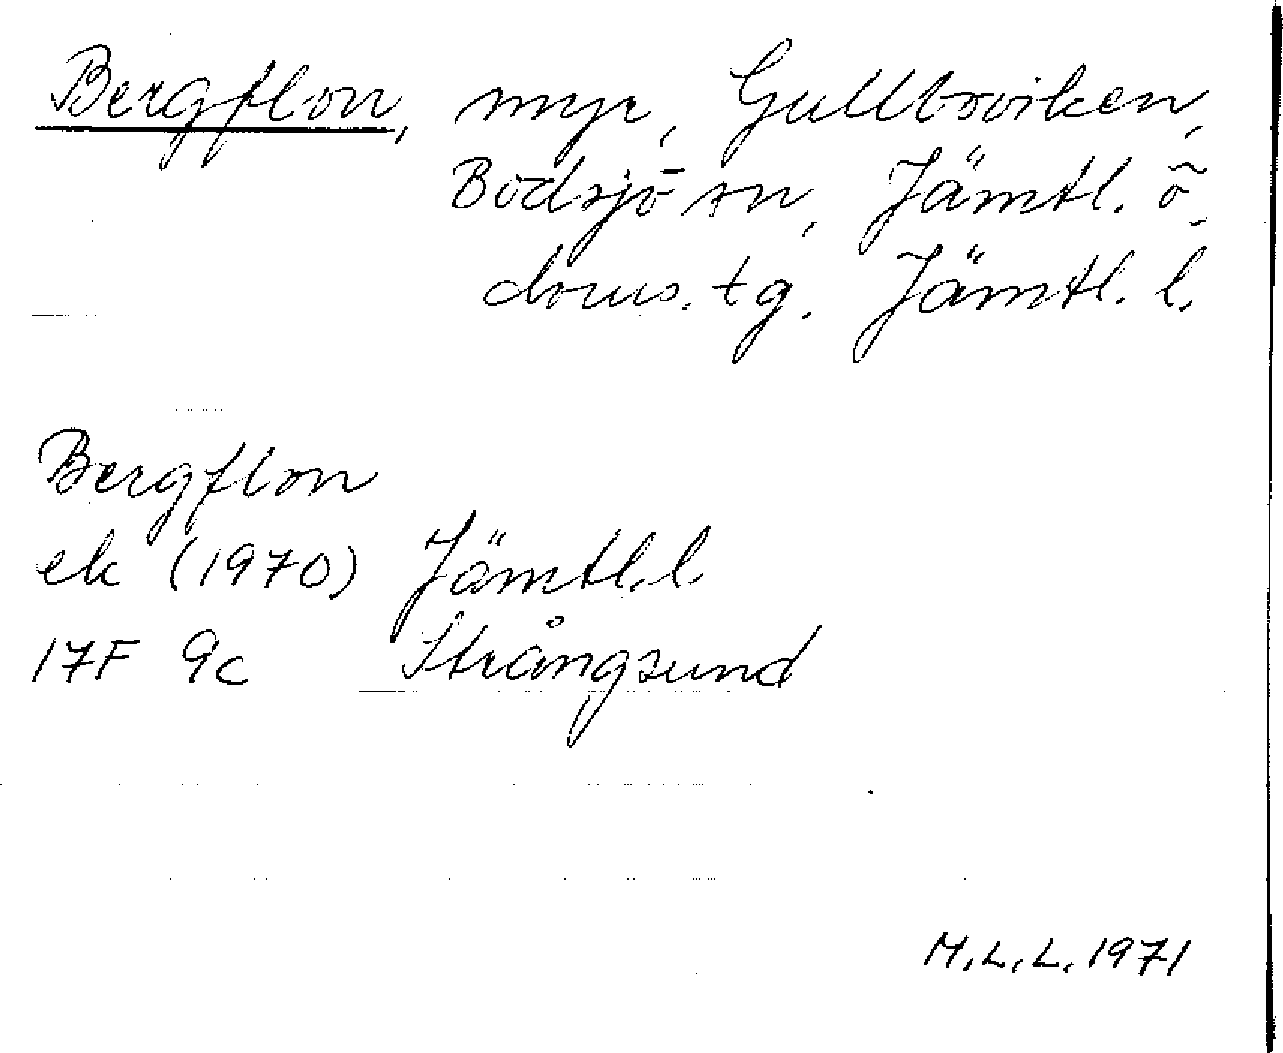 Bergflon, myr, Gullboviken,
Bodsjö sn, Jämtl. ö.
doms. tg. Jämtl. l.
Bergflon
ek (1970) Jämtl.l.
17F 9c Strångsund
M.L.L. 1971